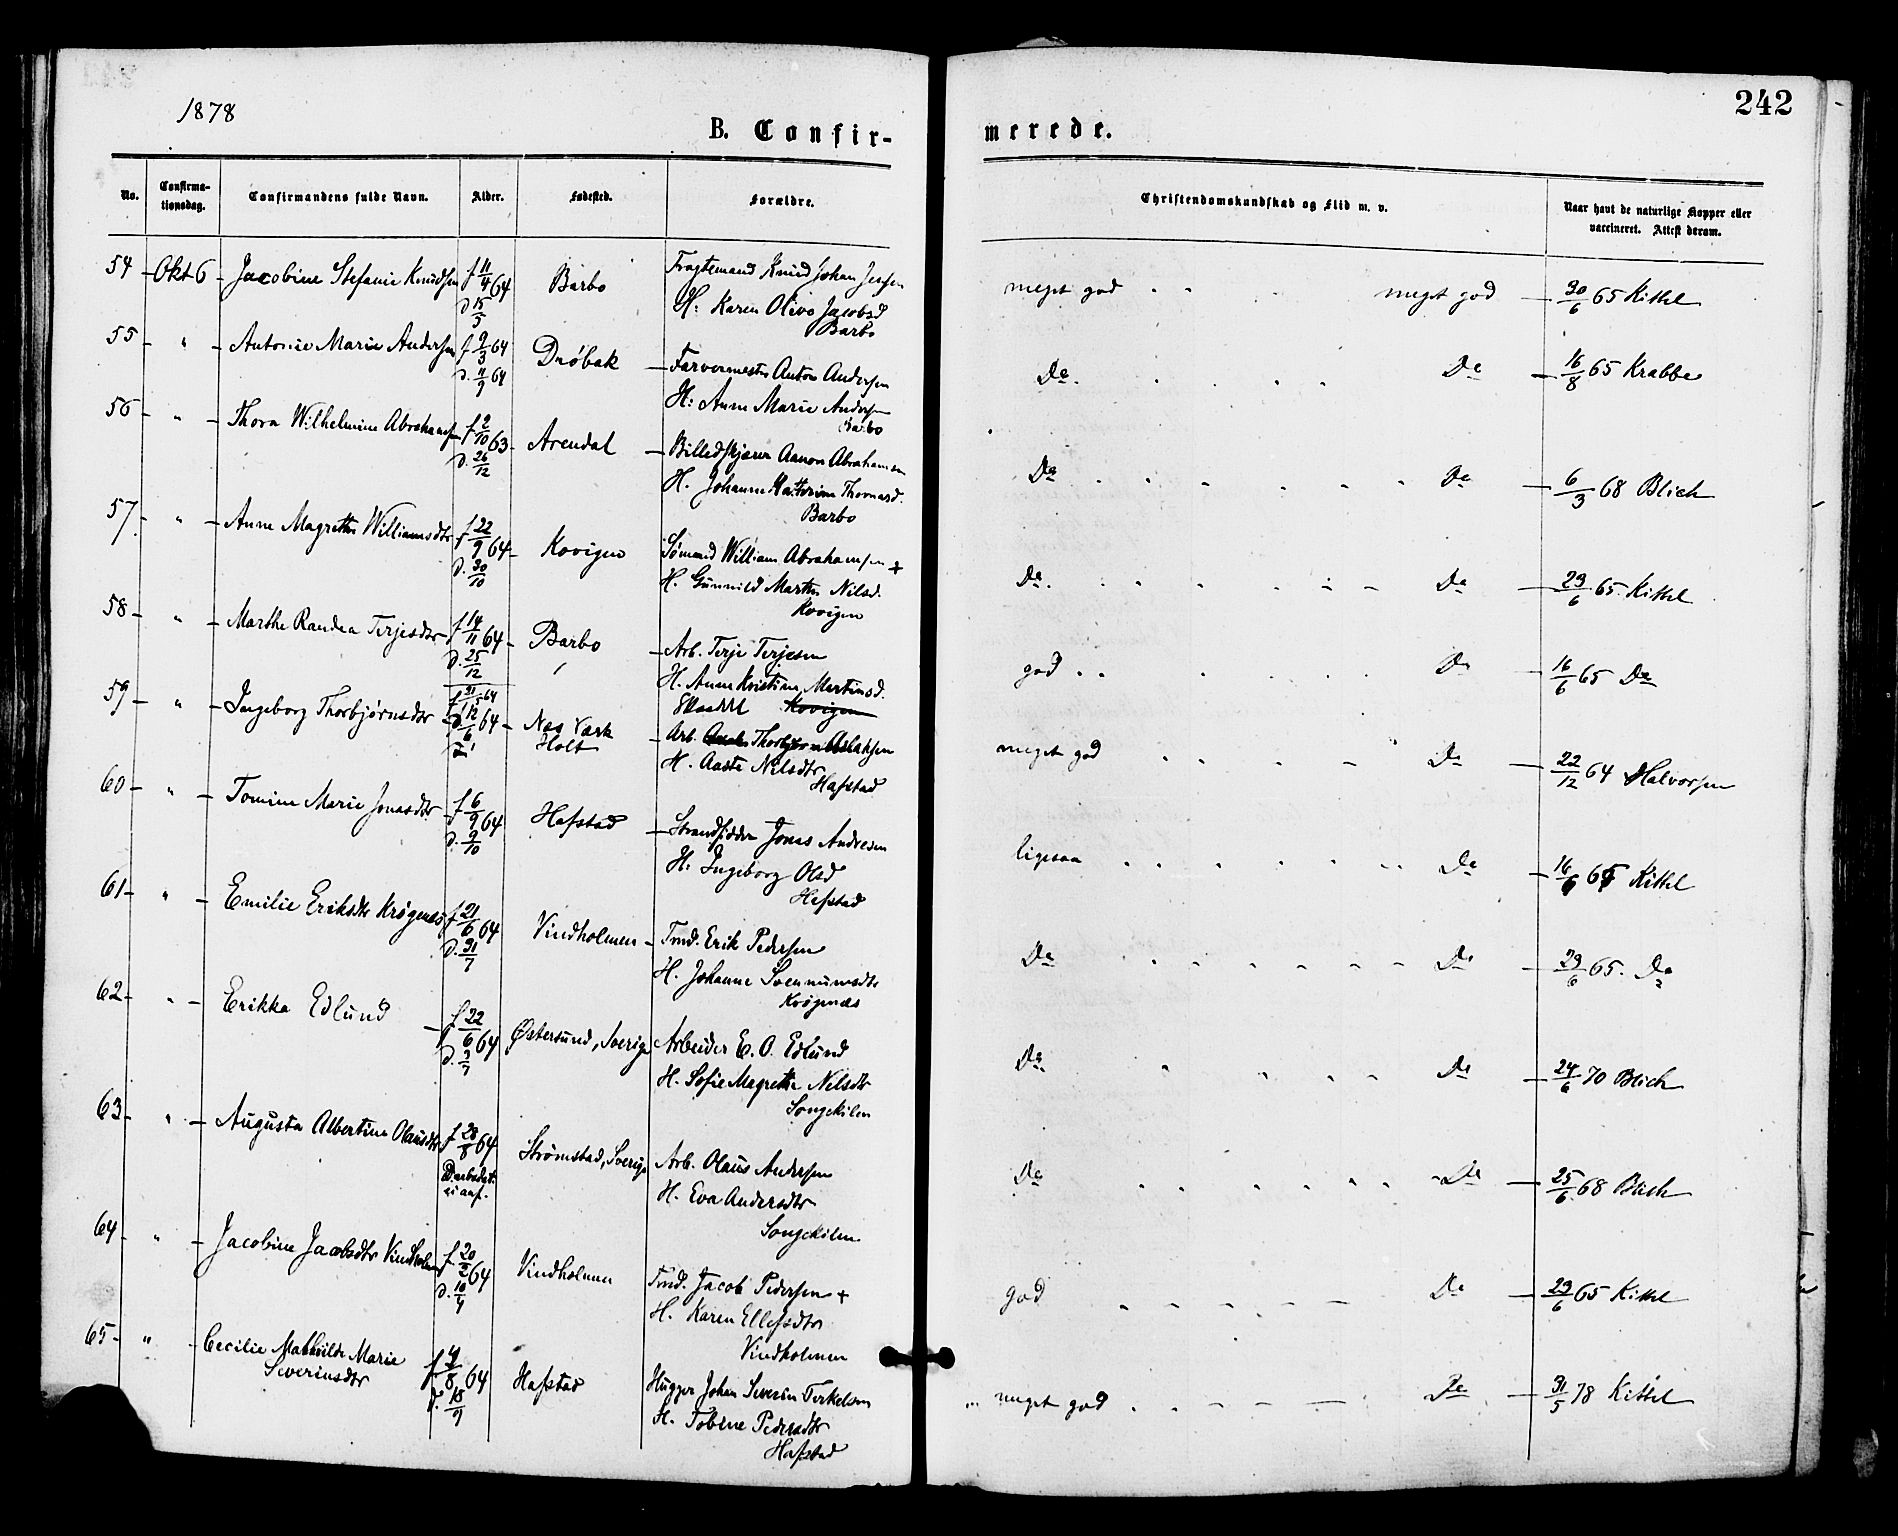 1878
B. Confir-
merede.
242
No.
Confirma-
tionsdag.
Confirmandens fulde Navn.
Alder.
Fødested.
Forældre.
Christendomskundskab og Flid m. v.
Naar havt de naturlige Kopper eller
vaccineret. Attest derom.
54 - Okt 6 - Jacobine Stefanie Knudsen f 11/4 64 Barbo Fragtemand Knud Johan Jessen meget god meget god 30/6 65 Kittel
d 15/5 H: Karen Olive Jacobsd
Barbo
55 - " - Antonie Marie Andersen f 9/3 64 Drøbak - Farvermester Anton Andersen Do. Do 16/8 65 Krabbe
d. 11/9 64 H: Anne Marie Andersen
Barbo
56 - " - Thora Wilhelmine Abrahamsen f 2/10 63 Arendal - Billedskjærer Aanon Abrahamsen Do Do 6/3 68 Blich
d. 26/12 H. Johanne Katterine Thomasd.
Barbo
57. " - Anne Magrethe Williamsdtr f 22/9 64 - Kovigen Sømand William Abrahamsen + Do. Do 29/6 65 Kittel
d. 30/10 H. Gunnild Marthe Nilsd.
Kovigen
58 - " - Marthe Randea Terjesdtr f 14/11 64 - Barbo - Arb. Terje Terjesen god Do 16/6 65 Do
d. 25/12 H. Anne Kristine Martinsd.
f 31/5 64 Kovigen
59 - " - Ingeborg Thorbjørnsdtr d. 12/6 64 - Næs Værk - Arb. Thorbjørn Aslaksen meget god Do 22/12 64 Halvorsen
Holt H. Aaste Nilsdtr
Hafstad
60 - " - Tomine Marie Jonasdtr f 6/9 64 Hafstad - Strandsidder Jonas Andresen ligesaa Do 16/6 65 Kittel
d. 9/10 H. Ingeborg Olsd
Hafstad
61 - " - Emilie Eriksdtr Krøgenes f 21/6 64 Vindholmen - Tmd. Erik Pedersen Do Do 29/6 65. Do
d. 31/7 H. Johanne Svennumsdtr
Krøgenæs
62 - " - Erikka Edlund - f 22/6 64 Østersund, Sverige Arbeider E. O. Edlund Do. Do 24/6 70 Blich
d. 3/7 H. Sofie Magrethe Nilsdtr
Songekilen
63 - " - Augusta Albertine Olausdtr f 28/8 64 Strømstad, Sverige Arb. Olaus Andersen Do Do 25/6 68 Blich
Daabsdat.
ei anf. H. Eva Andersdtr
Songekilen
64 - " - Jacobine Jacobsdtr Vindholmen f 20/2 64 Vindholmen Tmd. Jacob Pedersen + god Do 29/6 65 Kittel
d. 10/4 H. Karen Ellefsdtr
Vindholmen
65 - " - Cecilie Mathilde Marie
Severinsdtr f 4/8 64 Hafstad Hugger Johan Severin Terkelsen meget god Do 31/5 78 Kittel
d. 18/9 H. Tobine Pedersdtr
Hafstad